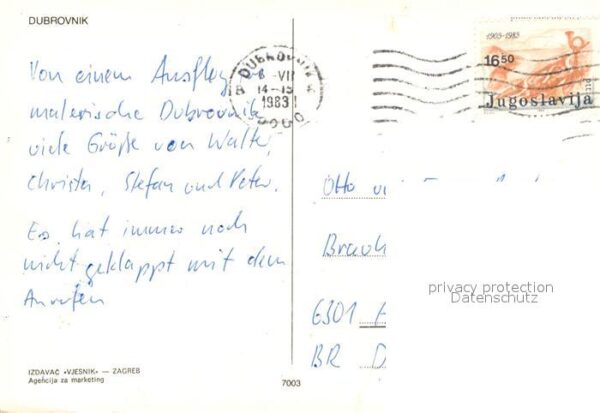 DUBROVNIK
DUBROVNIK
-6.-VII
14-15
1983
1903-1983
16.50
Jugoslavija
Von einem Ausflug
malerische Dubrovnik
viele Grüße von Walter,
Christa, Stefan und Peter.
Es hat immer noch
nicht geklappt mit dem
Anrufen
Otto
6301
BR D
privacy protection
Datenschutz
IZDAVAČ »VJESNIK« — ZAGREB
Agencija za marketing
7003